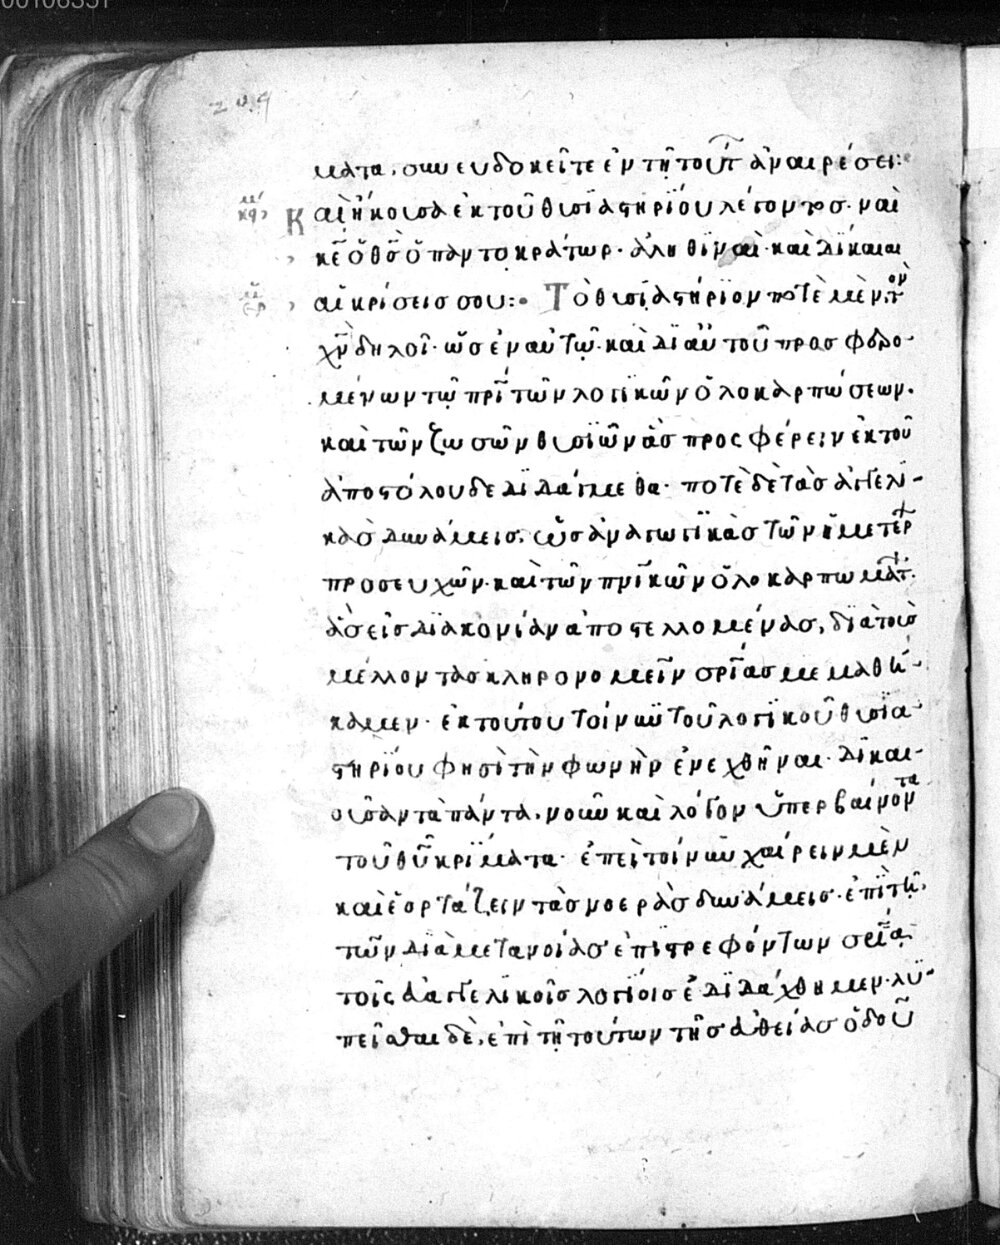 00106331
ματα, συνευδοκεῖτε ἐν τῇ τούτ ἀναιρέσει:
Καὶ ἤκουσα ἐκ τοῦ θυσϊαστηρϊόυ λέγοντος· ναὶ
κε̅ ὁ θσ̅ ὁ παντοκράτωρ· ἀληθιναὶ καὶ δίκαιαι
αἱ κρίσεισ σου:· Τὸ θυσϊαστήριον ποτὲ μὲν τὸν
χν̅ δηλοῖ· ὡσ ἐν αὐτῶ· καὶ δι αὐτοῦ προσφερο-
μένων τῷ πρι̅ τῶν λογικῶν ὁλοκαρπώσεων·
καὶ τῶν ζωσῶν θυσϊῶν ἃσ προσφέρειν ἐκ τοῦ
ἀποστόλου δεδιδάγμεθα· ποτὲ δὲ τὰσ ἀγγελι-
κὰσ δυνάμεισ, ὡσ ἀναγωγικὰσ τῶν ἡμετέρ
προσευχῶν· καὶ τῶν πνι̅κῶν ὁλοκαρπωμάτ·
ἃσ εἰσ διακονίαν ἀποστελλομένασ, διὰ τοὺσ
μέλλοντασ κληρονομεῖν σρι̅ασ μεμαθή-
καμεν· ἐκ τούτου τοίνυν τοῦ λογικοῦ θυσϊα-
στηρϊόυ φησὶ τὴν φωνὴν ἐνεχθῆναι· δικαι-
οῦσαν τὰ πάντα, νοῦν καὶ λόγον ὑπερβαίνοντα
τοῦ θυ̅ κρίματα· ἐπεὶ τοίνυν χαίρειν μὲν
καὶ ἑορτάζειν τὰσ νοερὰσ δυνάμεισ· ἐπὶ τῇ
τῶν διὰ μετανοίασ ἐπιστρεφόντων σρι̅α·
τοῖς εὐαγγελικοῖσ λογίοισ ἐδιδάχθημεν· λυ-
πεῖσθαι δὲ, ἐπὶ τῇ τούτων τῆσ εὐθείασ ὁδοῦ